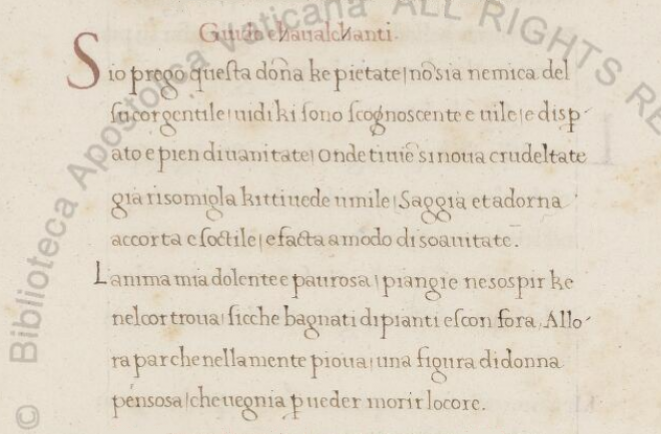 Guido chaualchanti.
Sio prego questa dõna ke pietate | nõ sia nemica del
su cor gentile | uidi ki sono scognoscente e uile | e disp
ato e pien di uanitate | Onde ti uiẽ si noua crudeltate
gia risomigla ki tti uede umile | Saggia et adorna
accorta e soctile | e facta a modo di soauitate.
Lanima mia dolente e paurosa | piangie ne sospir ke
nel cor troua | sicche bagnati di pianti escon fora, Allo
ra par che nella mente pioua | una figura di donna
pensosa | che uegnia p ueder morir lo core.
© Biblioteca Apostolica Vaticana ALL RIGHTS RE